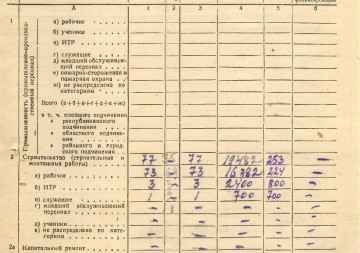 А 1 2 3 4 5 6
1
Промышленность (промышленно-производственный персонал)
а) рабочие
б) ученики
в) ИТР
г) служащие
д) младший обслуживающий персонал
е) пожарно-сторожевая и
охрана
ж) не распределено по
категориям
Всего (а+б+в+г+д+е+ж)
в т. ч. союзного подчинения
» республиканского
подчинения
» областного подчинения
» районного и городского подчинения
2 Строительство (строительные и
монтажные работы) 77 77 19482 253 —
а) рабочие 73 73 16382 224 —
б) ИТР 3 — 3 2400 800 —
в) служащие 1 — 1 700 700 —
г) младший обслуживающий
персонал — — — — — —
д) ученики
е) не распределено по категориям — — — — — —
2а Капитальный ремонт — — — — — —